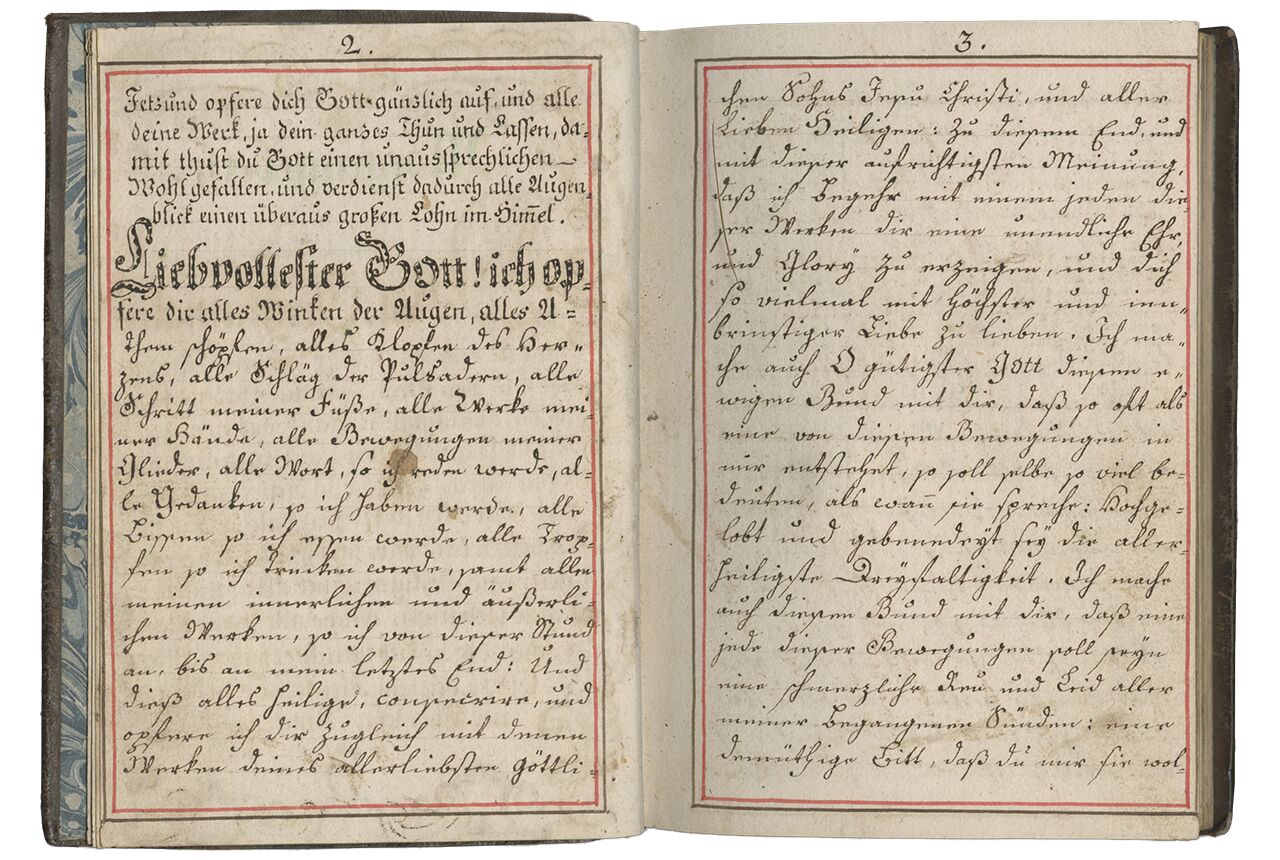 2.
Jetzund opfere dich Gott gänzlich auf, und alle
deine Werk, ja dein ganzes Thun und Lassen, da=
mit thust du Gott einen unaussprechlichen
Wohlgefallen, und verdienst dadurch alle Augen
blick einen überaus großen Lohn im Him̄el.
Liebvollester Gott! ich op=
fere dir alles Winken der Augen, alles A=
them schöpfen, alles Klopfen des Her=
zens, alle Schläg der Pulsadern, alle
Schritt meiner Füße, alle Werke mei=
ner Hände, alle Bewegungen meiner
Glieder, alle Wort, so ich reden werde, al=
le Gedanken, so ich haben werde, alle
Bissen so ich essen werde, alle Trop=
fen so ich trincken werde, samt allen
meinen innerlichen und äußerli=
chen Werken, so ich von dieser Stund
an, bis an mein letztes End: Und
dieß alles heilige, consecrire, und
opfere ich dir zugleich mit denen
Werken deines allerliebsten göttli=
3.
chen Sohns Jesu Christi, und aller
Lieben Heiligen: zu diesem End, und
mit dieser aufrichtigsten Meinung,
daß ich begehr mit einem jeden die=
ser Werken dir eine unendliche Ehr,
und Glory zu erzeigen, und dich
so vielmal mit höchster und inn=
brinstiger Liebe zu lieben. Ich ma=
che auch O gütigster Gott diesen e=
wigen Bund mit dir, daß so oft als
eine von diesen Bewegungen in
mir entstehet, so soll selbe so viel be=
deuten, als wan̄ sie spreche: Hochge=
lobt und gebenedeyt sey die aller=
heiligste Dreyfaltigkeit. Ich mache
auch diesen Bund mit dir, daß eine
jede dieser Bewegungen soll seyn
eine schmerzliche Reu und Leid aller
meiner begangenen Sünden: eine
demüthige Bitt, daß du mir sie wol=